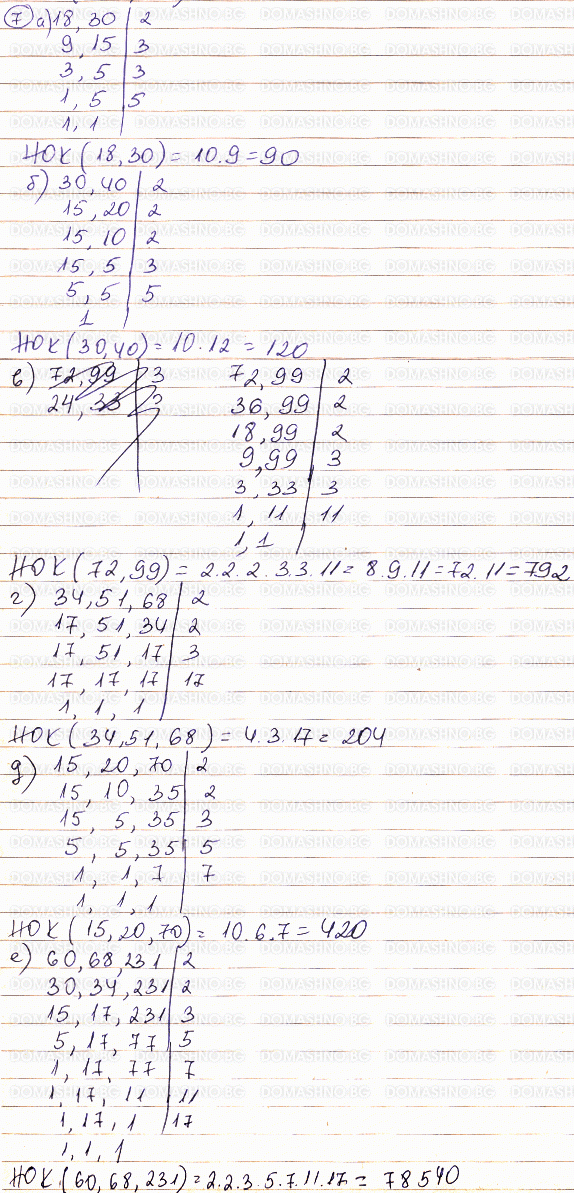 7 а) 18, 30 | 2
9, 15 | 3
3, 5 | 3
1, 5 | 5
1, 1
НОК (18, 30) = 10.9 = 90
б) 30, 40 | 2
15, 20 | 2
15, 10 | 2
15, 5 | 3
5, 5 | 5
1
НОК (30, 40) = 10.12 = 120
в) 72, 99 | 3 72, 99 | 2
24, 33 | 3 36, 99 | 2
18, 99 | 2
9, 99 | 3
3, 33 | 3
1, 11 | 11
1, 1
НОК (72, 99) = 2.2.2.3.3.11 = 8.9.11 = 72.11 = 792
г) 34, 51, 68 | 2
17, 51, 34 | 2
17, 51, 17 | 3
17, 17, 17 | 17
1, 1, 1
НОК (34, 51, 68) = 4.3.17 = 204
д) 15, 20, 70 | 2
15, 10, 35 | 2
15, 5, 35 | 3
5, 5, 35 | 5
1, 1, 7 | 7
1, 1, 1
НОК (15, 20, 70) = 10.6.7 = 420
е) 60, 68, 231 | 2
30, 34, 231 | 2
15, 17, 231 | 3
5, 17, 77 | 5
1, 17, 77 | 7
1, 17, 11 | 11
1, 17, 1 | 17
1, 1, 1
НОК (60, 68, 231) = 2.2.3.5.7.11.17 = 78540
DOMASHNO.BG